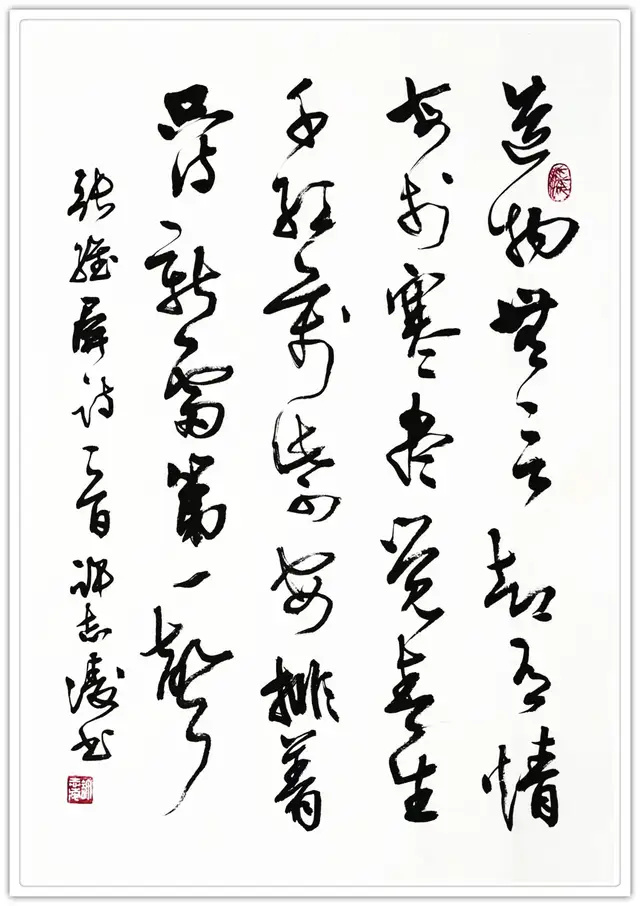 造物無言却有情
每於寒盡覺春生
千紅萬紫安排着
只待新雷第一聲
張維屏詩一首 志 书